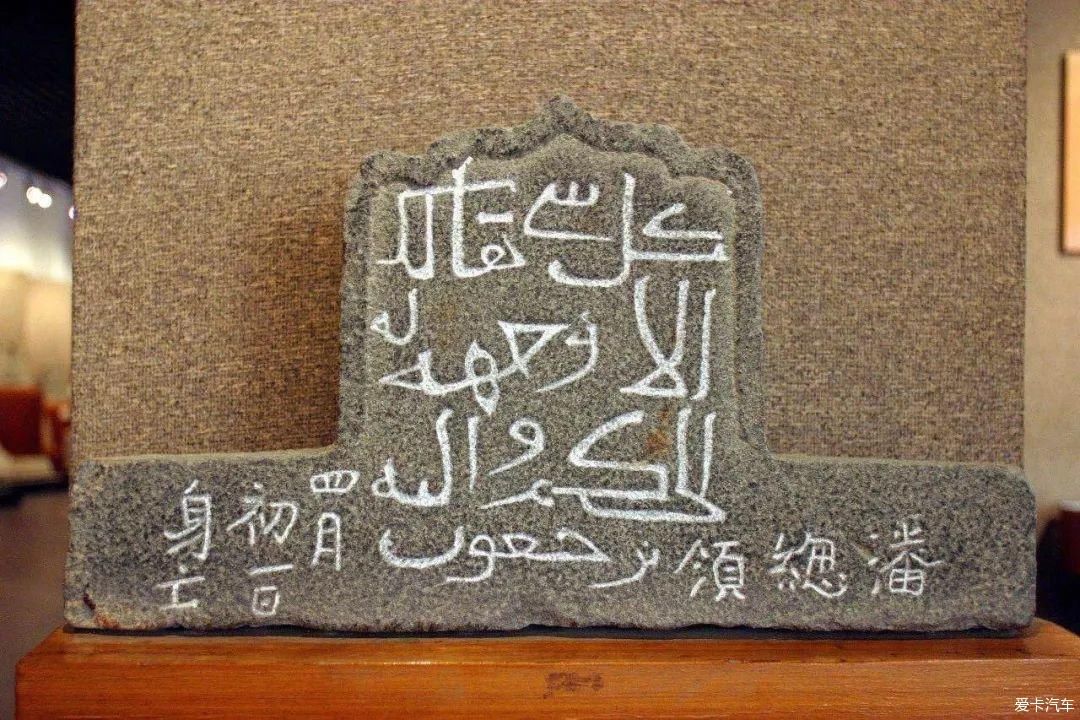 كل شي هالك
الا وجهه له
الحكم و اليه
ترجعون
潘總領
四月
初一日
身亡
爱卡汽车